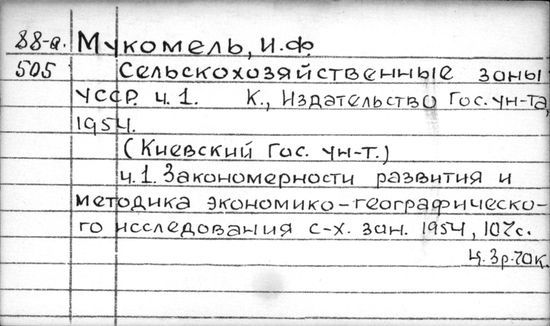 88-а. Мукомель, И.Ф.
505 Сельскохозяйственные зоны
УССР. ч.1. К., Издательство Гос. ун-та,
1954.
(Киевский Гос. ун-т.)
ч.1. Закономерности развития и
методика экономико-географическо-
го исследования с-х. зон. 1954, 107с.
ц. 3р.70к.